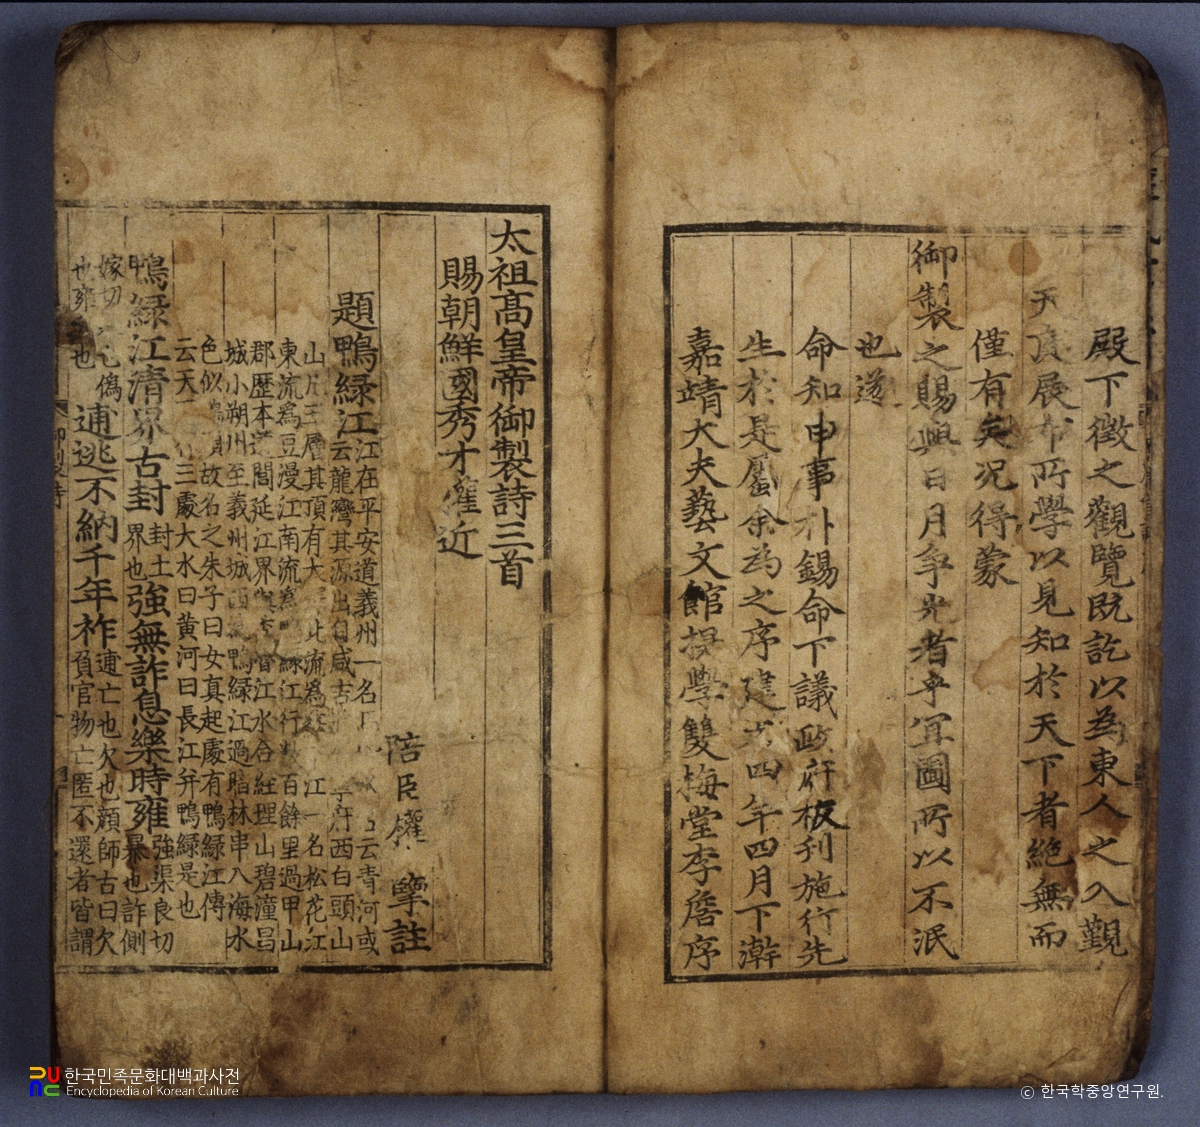 殿下徵之觀覽旣訖以為東人之入覲
天 展布所學以見知於天下者絶無而
僅有矣况得蒙
御製之賜與日月争光者乎宜圖所以不泯
也遂
命知申事朴錫命下議政府板刊施行先
生於是屬余為之序建文四年四月下澣
嘉靖大夫藝文館提學雙梅堂李詹序
太祖高皇帝御製詩三首
賜朝鮮國秀才權近
陪臣權 擥註
題鴨綠江
江在平安道義州一名 云青河或
云龍灣其源出自咸吉 府西白頭山
山 三層其頂有大 北流爲 江一名松花江
東流爲豆漫江南流爲鴨綠江行 百餘里過甲山
郡歷本道閭延江界與 江水合經理山碧潼昌
城小朔州至義州城西 鴨綠江過暗林串入海水
色似鴨頭故名之朱子曰女真起處有鴨綠江傳
云天下有三處大水曰黄河曰長江并鴨綠是也
鴨綠江清界古封
封土
界也
強無詐息樂時雍
強渠良切
暴也詐側
嫁切 偽
也雍 也
逋逃不納千年祚
逋亡也欠也顔師古曰欠
負官物亡匿不還者皆謂
한국민족문화대백과사전
Encyclopedia of Korean Culture
ⓒ 한국학중앙연구원.